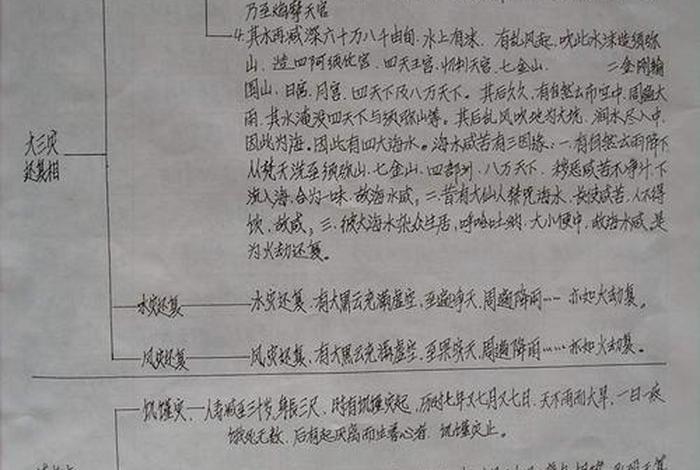 乃至焰摩天宫
4.其水再减深六十万八千由旬.水上有沫.有乱风起.吹此水沫造须弥
山.造四阿须伦宫.四天王宫.忉利天宫.七金山. 二金刚轮
围山.日宫.月宫.四天下及八万天下.其后久久.有自然云布空中.周遍大
雨.其水淹没四天下与须弥山等.其后乱风吹地为大坑.涧水尽入中.
因此为海。因此有四大海水。海水咸苦有三因缘:一.有自然云雨降下
从梵天洗至须弥山.七金山.四部洲.八万天下.秽恶咸苦不净汁.下
流入海.合为一味.故海水咸;二.昔有大仙人禁咒海水.长使咸苦.人不得
饮.故咸;三.彼大海水杂众生居.呼哈吐纳.大小便中.故海水咸.是
为火劫还复。
大三灾
还复相
水灾还复 水灾还复.有大黑云充满虚空,至遍净天,周遍降雨……亦如火劫复。
风灾还复 风灾还复.有大黑云充满虚空,至果实天,周遍降雨……亦如火劫复。
饥馑灾 人寿减至三十岁.身长三尺.时有饥馑灾起,历时七年又七月又七日.天不雨而大旱,一日一夜
饿死无数.后有起厌离而生善心者.饥馑灾止。